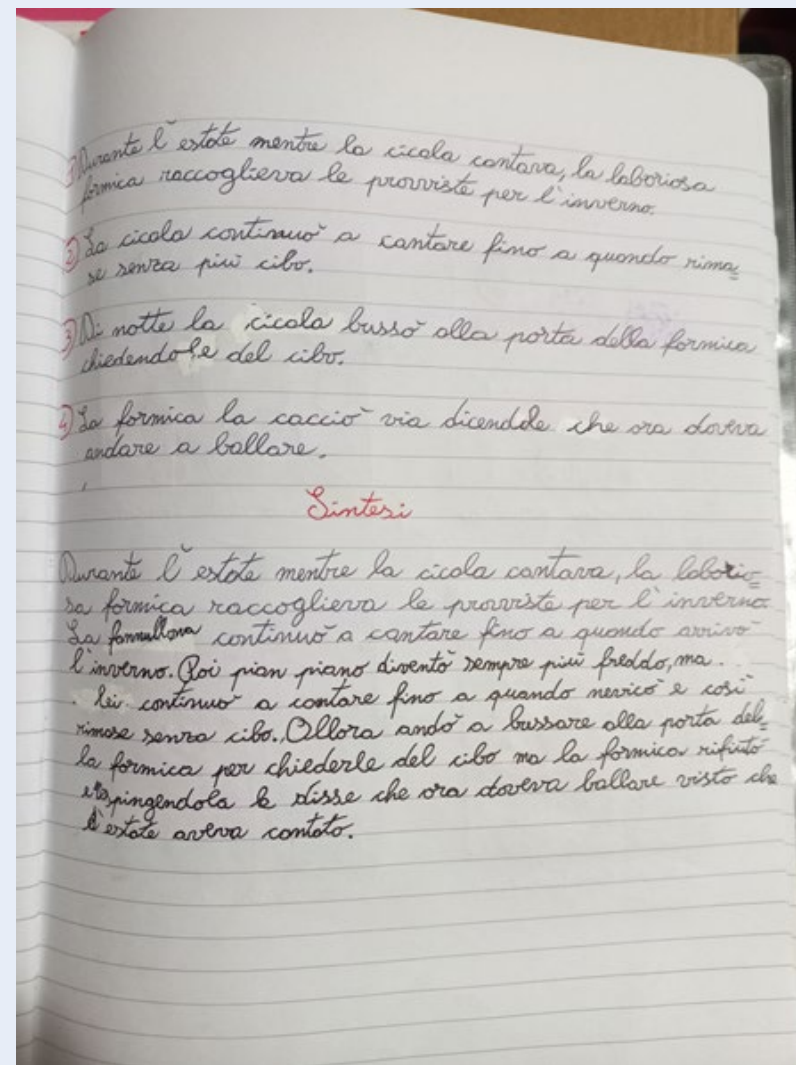 1) Durante l'estate mentre la cicala cantava, la laboriosa
formica raccoglieva le provviste per l'inverno.
2) La cicala continuò a cantare fino a quando rima=
se senza più cibo.
3) Di notte la cicala bussò alla porta della formica
chiedendole del cibo.
4) La formica la cacciò via dicendole che ora doveva
andare a ballare.
Sintesi
Durante l'estate mentre la cicala cantava, la laborio=
sa formica raccoglieva le provviste per l'inverno.
La fannullona continuò a cantare fino a quando arrivò
l'inverno. Poi pian piano diventò sempre più freddo, ma
lei continuò a cantare fino a quando nevicò e così
rimase senza cibo. Allora andò a bussare alla porta del=
la formica per chiederle del cibo ma la formica rifiutò
respingendola le disse che ora doveva ballare visto che
l'estate aveva cantato.